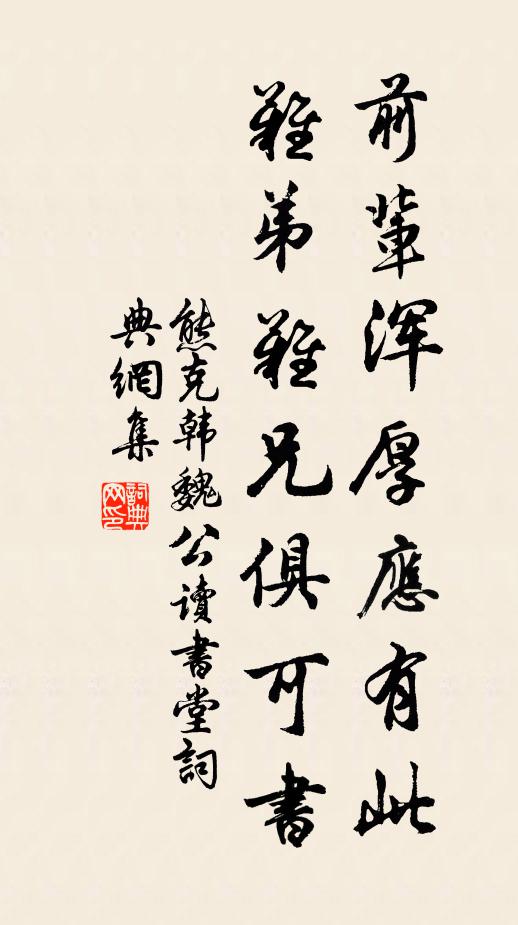 前輩渾厚應有此
難弟難兄俱可書
熊克韓魏公讀書堂詞
典網集
詞典網印